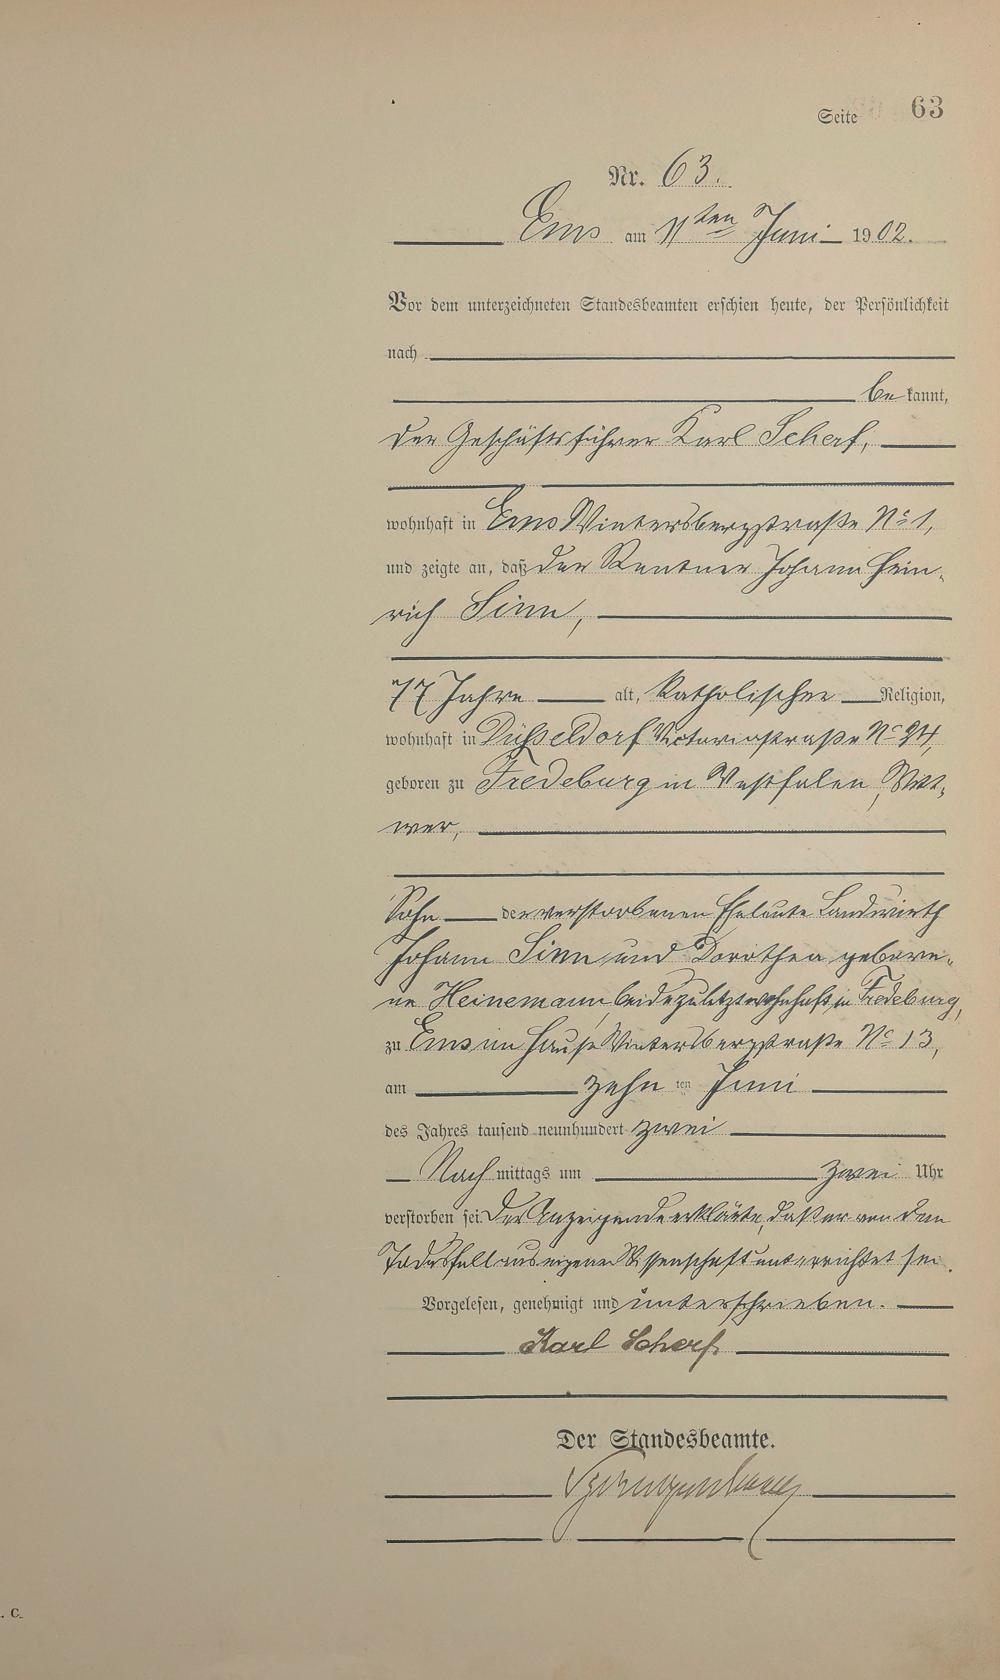 Seite 63
Nr. 63.
Ems am 11ten Juni 1902.
Vor dem unterzeichneten Standesbeamten erschien heute, der Persönlichkeit
nach
be kannt,
der Geschäftsführer Karl Scherf,
wohnhaft in Ems Wintersbergstraße No 1,
und zeigte an, daß der Rentner Johann Hein-
rich Sinn,
77 Jahre alt, katholischer Religion,
wohnhaft in Düsseldorf Victoriastraße No 24,
geboren zu Fredeburg in Westfalen, Witt-
wer,
Sohn der verstorbenen Eheleute Landwirth
Johann Sinn und Dorothea gebore-
ne Heinemann, beide zuletzt wohnhaft in Fredeburg,
zu Ems im Hause Wintersbergstraße No 13,
am zehn ten Juni
des Jahres tausend neunhundert zwei
Nach mittags um zwei Uhr
verstorben sei. Der Anzeigende erklärte, daß er von dem
Todesfall aus eigener Wissenschaft unterrichtet sei.
Vorgelesen, genehmigt und unterschrieben.
Karl Scherf
Der Standesbeamte.
. C.